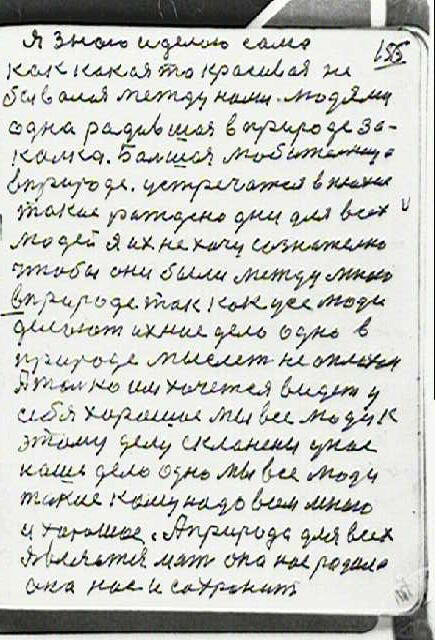 155
я знаю и делаю сама
как какая то красивая не
бывалая между нами людями
одна радившая в природе за-
калка. Балшая любительница
в природе. устречатся в
такие раждено дни для всех
людей я их не хочу сознателно
чтобы они были между мною
в природе так как усе люди
делают ихние дело одно в
природе мыслет не
А толко им хочется видет у
себя хорошое мы все люди к
этому делу склонены у нас
наше дело одно мы все люди
такие кому надо всем много
и хорошое. А природа для всех
является мат она нас радила
она нас и сохранит